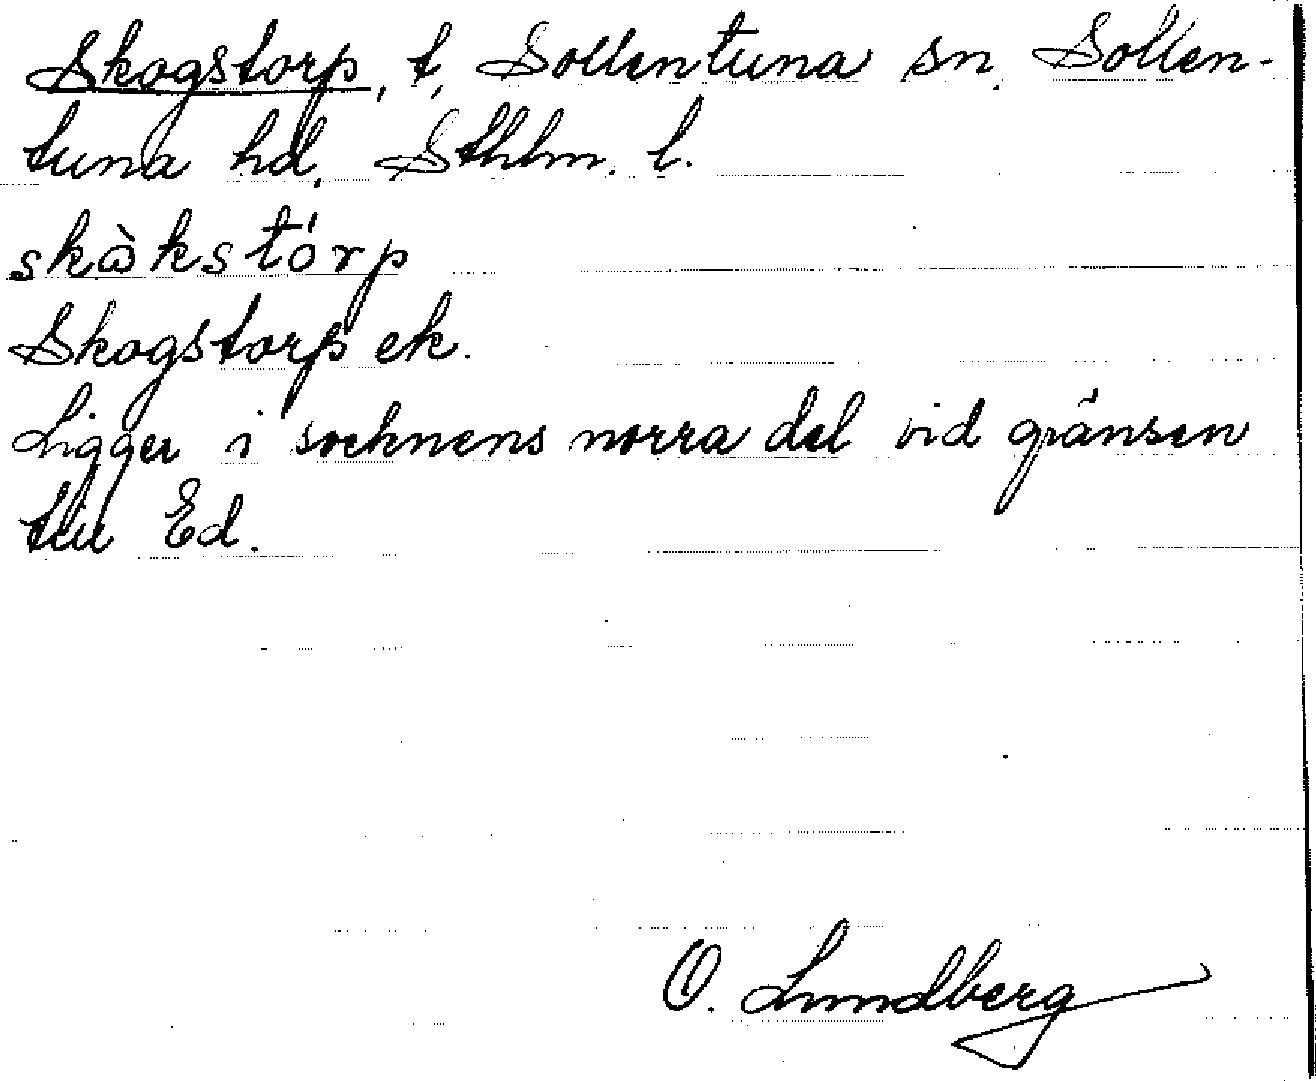 Skogstorp, t, Sollentuna sn. Sollen-
tuna hd. Sthlm. l.
skὰkstórp
Skogstorp ek.
Ligger i socknens norra del vid gränsen
till Ed.
O. Lundberg